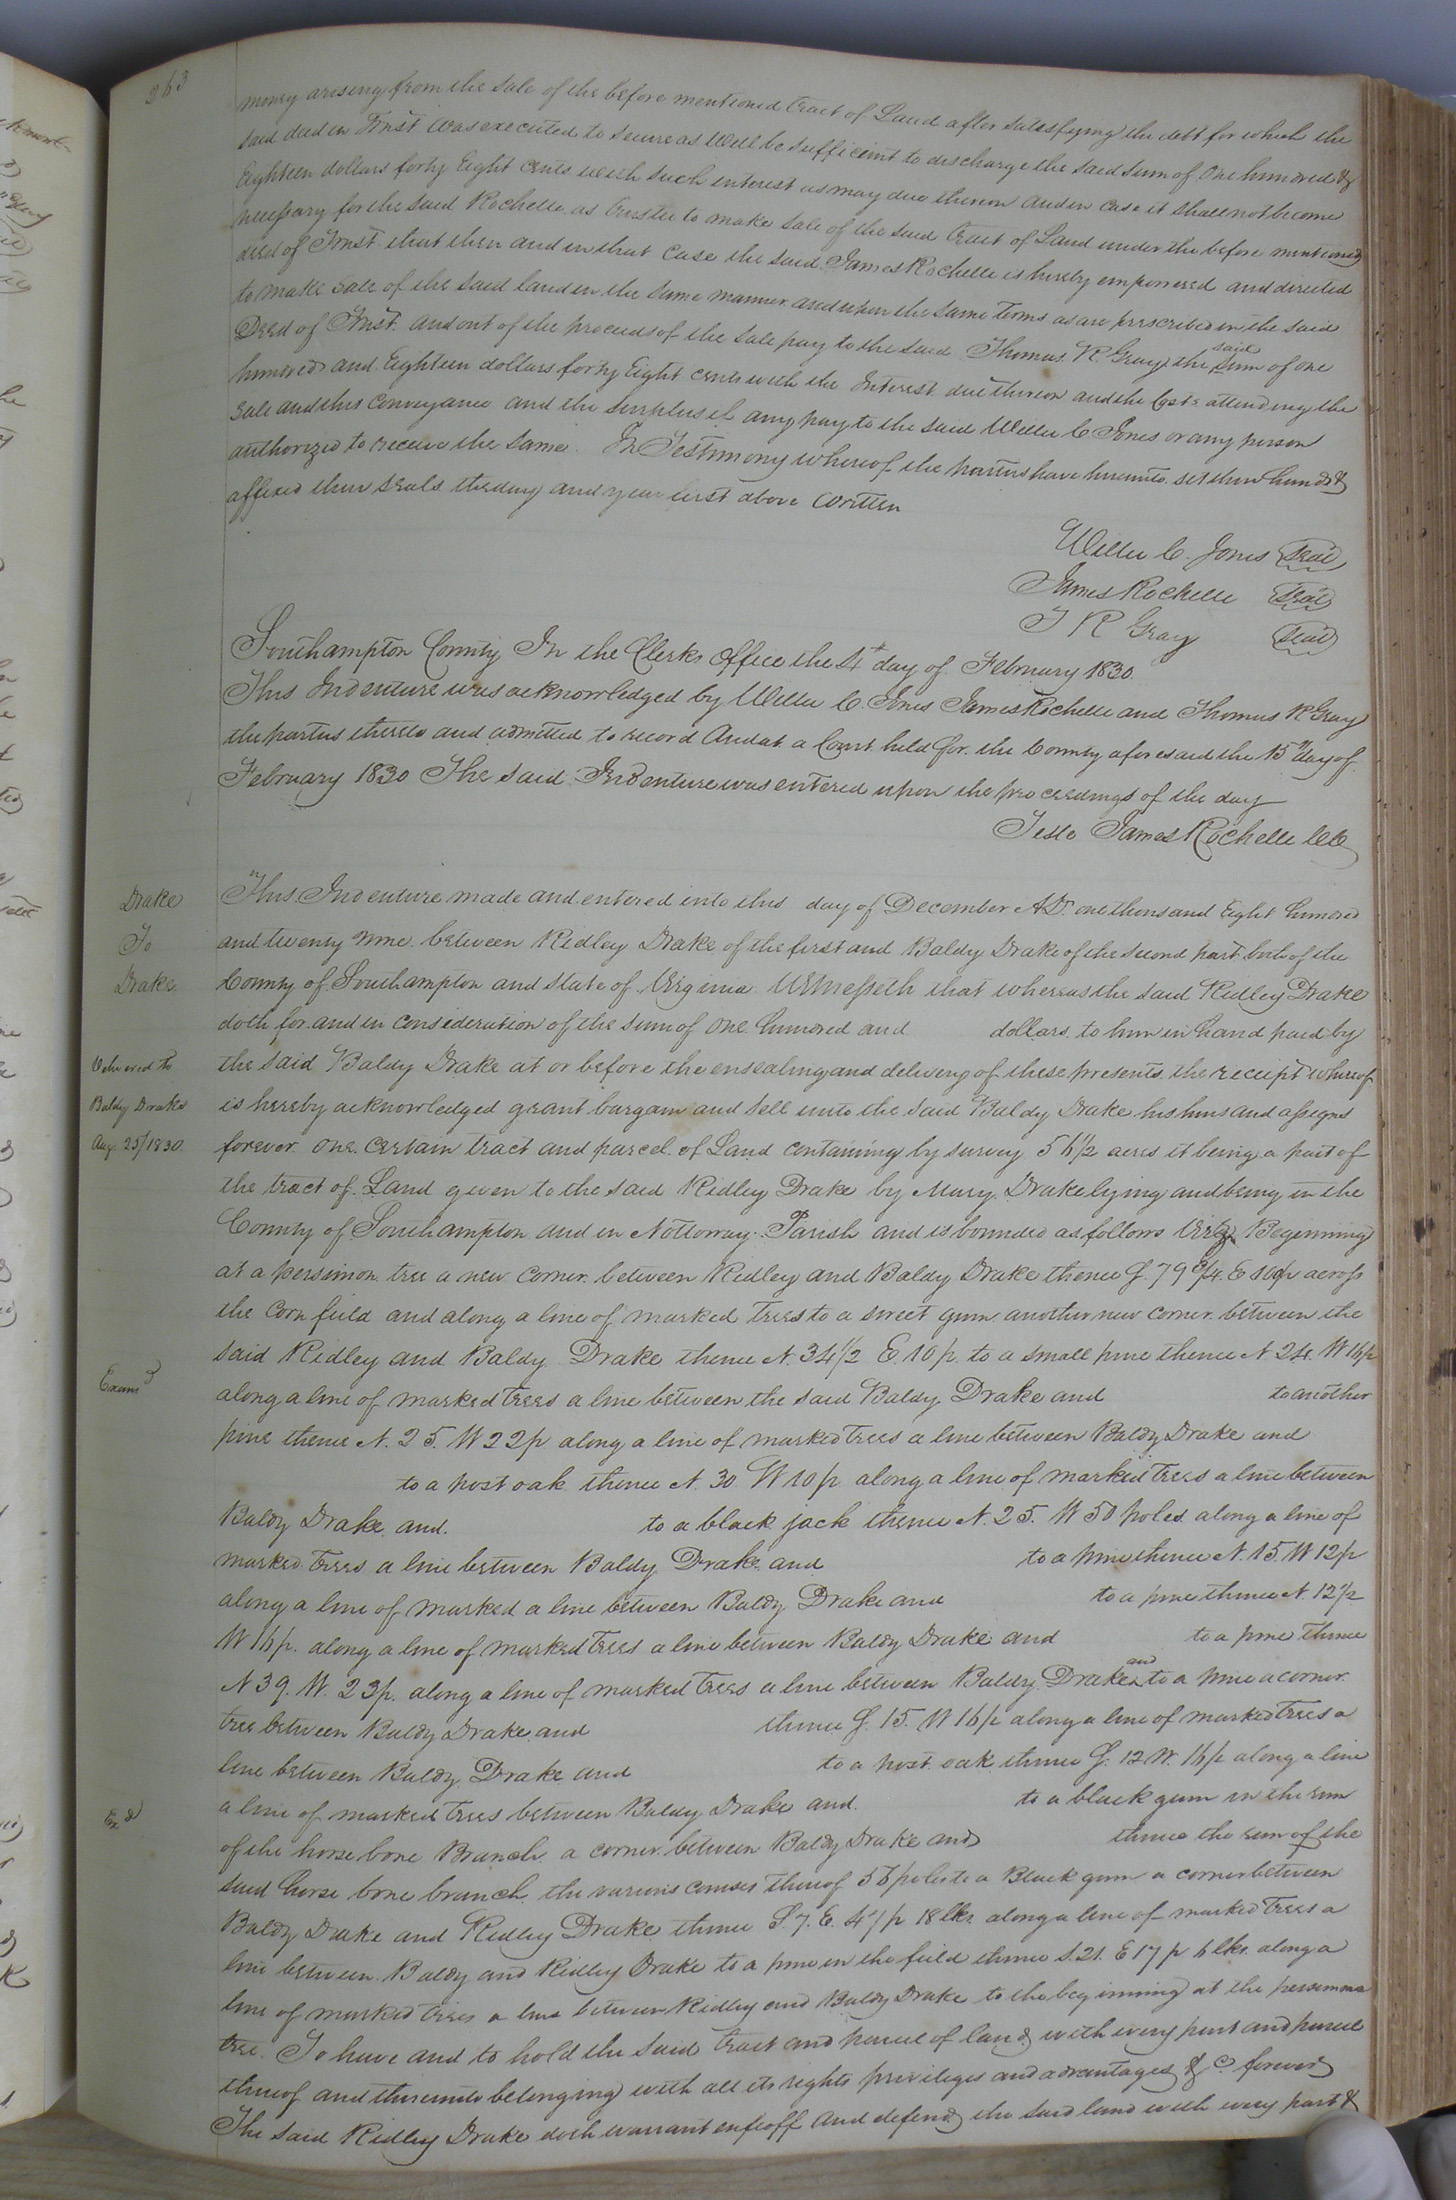 263
money arising from the sale of the before mentioned tract of Land after satisfying the debt for which the
said deed in Trust was executed to secure as Well be sufficient to discharge the said sum of One hundred &
Eighteen dollars forty Eight cents with such interest as may due thereon And in case it shall not become
necessary for the said Rochelle as trustee to make sale of the said tract of Land under the before mentioned
deed of Trust that then and in that case the said James Rochelle is hereby empowered and directed
to make sale of the said land in the same manner and upon the same terms as are prescribed in the said
Deed of Trust. And out of the proceeds of the sale pay to the said Thomas R Gray the said sum of one
hundred and Eighteen dollars forty Eight cents with the Interest due thereon and the Costs attending the
sale and this Conveyance and the surplus if any pay to the said Willie C Jones or any person
authorized to receive the same. In Testimony whereof the parties have hereunto set their hands &
affixed their seals the day and year first above Written
Willie C. Jones Seal
James Rochelle Seal
T R Gray Seal
Southampton County In the Clerks Office the 4th day of February 1830.
This Indenture was acknowledged by Willie C. Jones James Rochelle and Thomas R Gray
the parties thereto and admitted to record And at a Court held for the County aforesaid the 15th day of
February 1830 The said Indenture was entered upon the proceedings of the day
Teste James Rochelle
Drake
To
Drake
Delivered to
Baldy Drake
Aug. 25/1830.
This Indenture made and entered into this day of December AD. one thousand Eight hundred
and twenty Nine between Ridley Drake of the first and Baldy Drake of the second part both of the
County of Southampton and State of Virginia Witnesseth that whereas the said Ridley Drake
doth for and in consideration of the sum of one hundred and dollars to him in hand paid by
the said Baldy Drake at or before the ensealing and delivery of these presents the receipt whereof
is hereby acknowledged grant bargain and sell unto the said Baldy Drake his heirs and assigns
forever one certain tract and parcel of Land containing by survey 56 1/2 acres it being a part of
the tract of Land given to the said Ridley Drake by Mary Drake lying and being in the
County of Southampton and in Nottoway Parish and is bounded as follows Viz Beginning
at a persimon tree a new corner between Ridley and Baldy Drake thence S. 79 3/4 E across
the Corn field and along a line of marked trees to a sweet gum another new corner between the
said Ridley and Baldy Drake thence N. 34 1/2 E. 10 p. to a small pine thence N 24. W 16p
Examd
along a line of marked trees a line between the said Baldy Drake and to another
pine thence N. 25. W 22p along a line of marked trees a line between Baldy Drake and
to a post oak thence N. 30 W 10 p. along a line of marked trees a line between
Baldy Drake and. to a black jack thence N. 25. W 50 poles along a line of
marked trees a line between Baldy Drake and to a pine thence N. 15. W 12p
along a line of marked a line between Baldy Drake and to a pine thence N. 12
W 16p. along a line of marked trees a line between Baldy Drake and to a pine thence
N 39. W. 23p. along a line of marked trees a line between Baldy Drake and to a pine a corner
tree between Baldy Drake and thence S. 15. W 16p along a line of marked trees a
line between Baldy Drake and to a post oak thence S. 12 W. 16p along a line
a line of marked trees between Baldy Drake and. to a black gum in the run
Exd
of the horse bone Branch a corner between Baldy Drake and thence the run of the
said horse bone branch the various courses thereof 56 poles to a Black gum a corner between
Baldy Drake and Ridley Drake thence S. 7. E. 18 lks along a line of marked trees a
line between Baldy and Ridley Drake to a pine in the field thence S. 21. E 17 p 6 lks. along a
line of marked trees a line between Ridley and Baldy Drake to the beginning at the persimmon
tree. To have and to hold the said tract and parcel of land with every part and parcel
thereof and thereunto belonging with all its rights priviliges and advantages &c forever
The said Ridley Drake doth warrant enfeoff and defend the said land with every part &